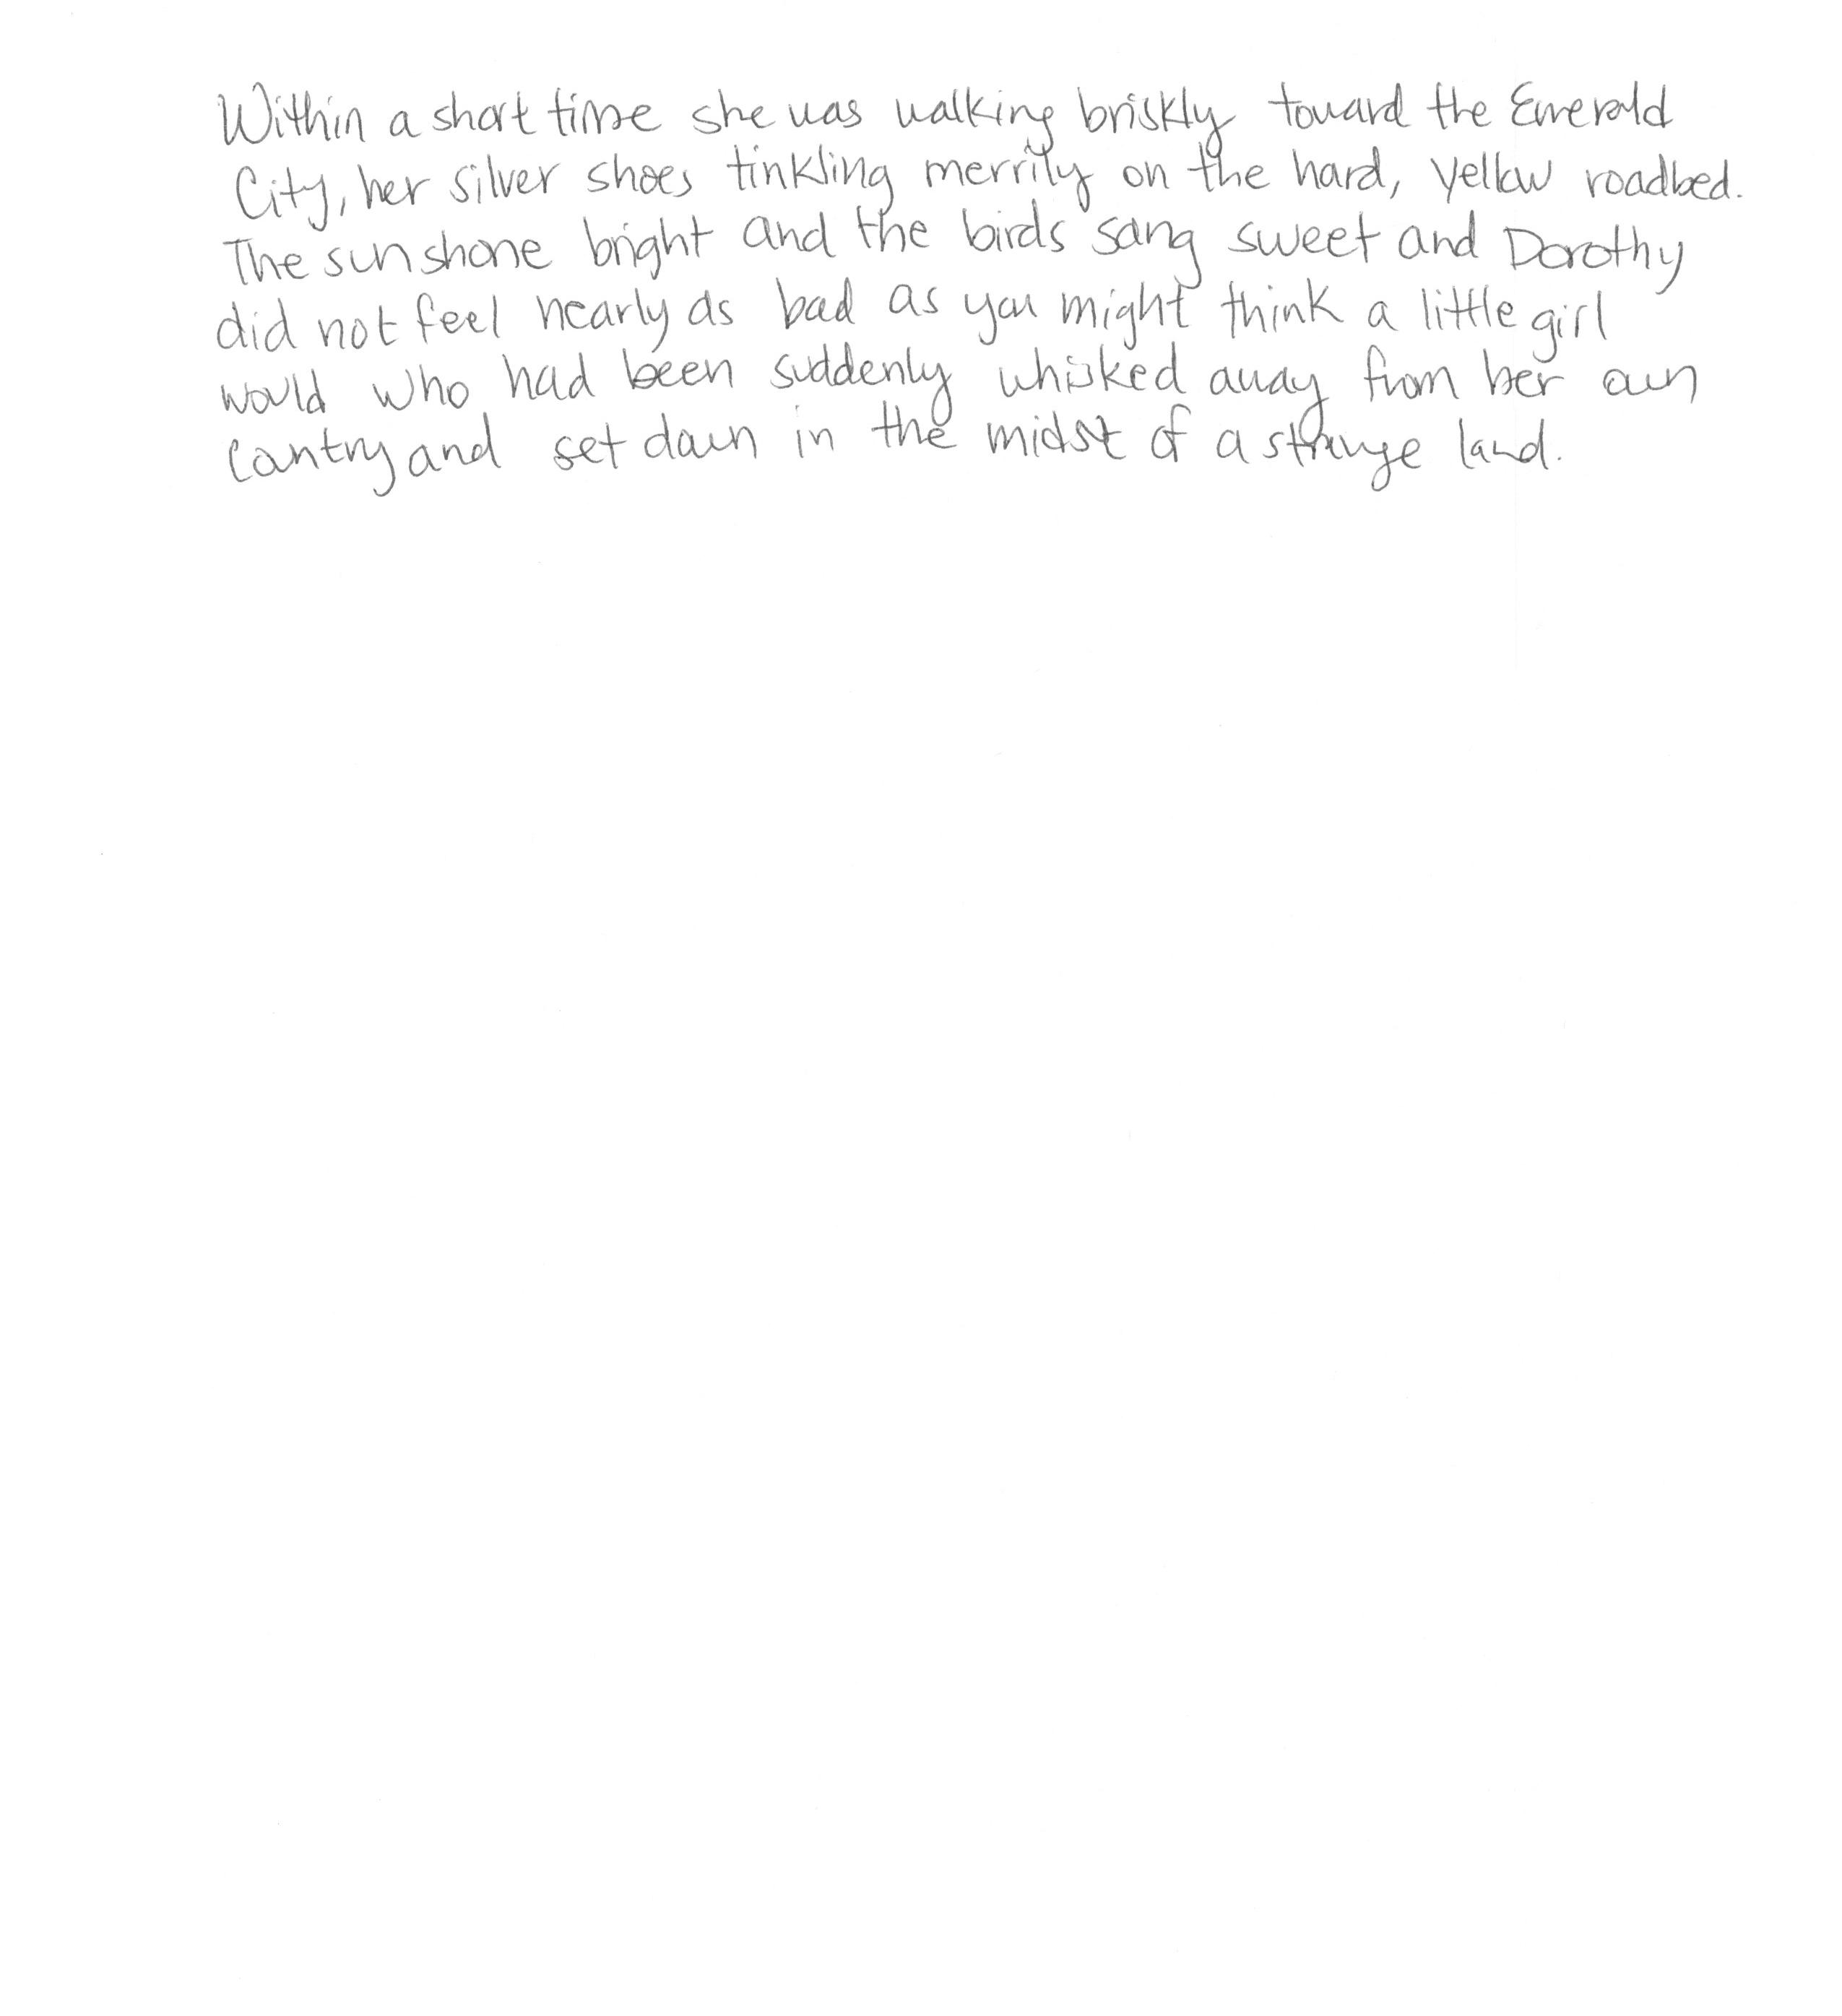 Within a short time she was walking briskly toward the Emerald
City, her silver shoes tinkling merrily on the hard, yellow roadbed.
The sun shone bright and the birds sang sweet and Dorothy
did not feel nearly as bad as you might think a little girl
would who had been suddenly whisked away from her own
country and set down in the midst of a strange land.